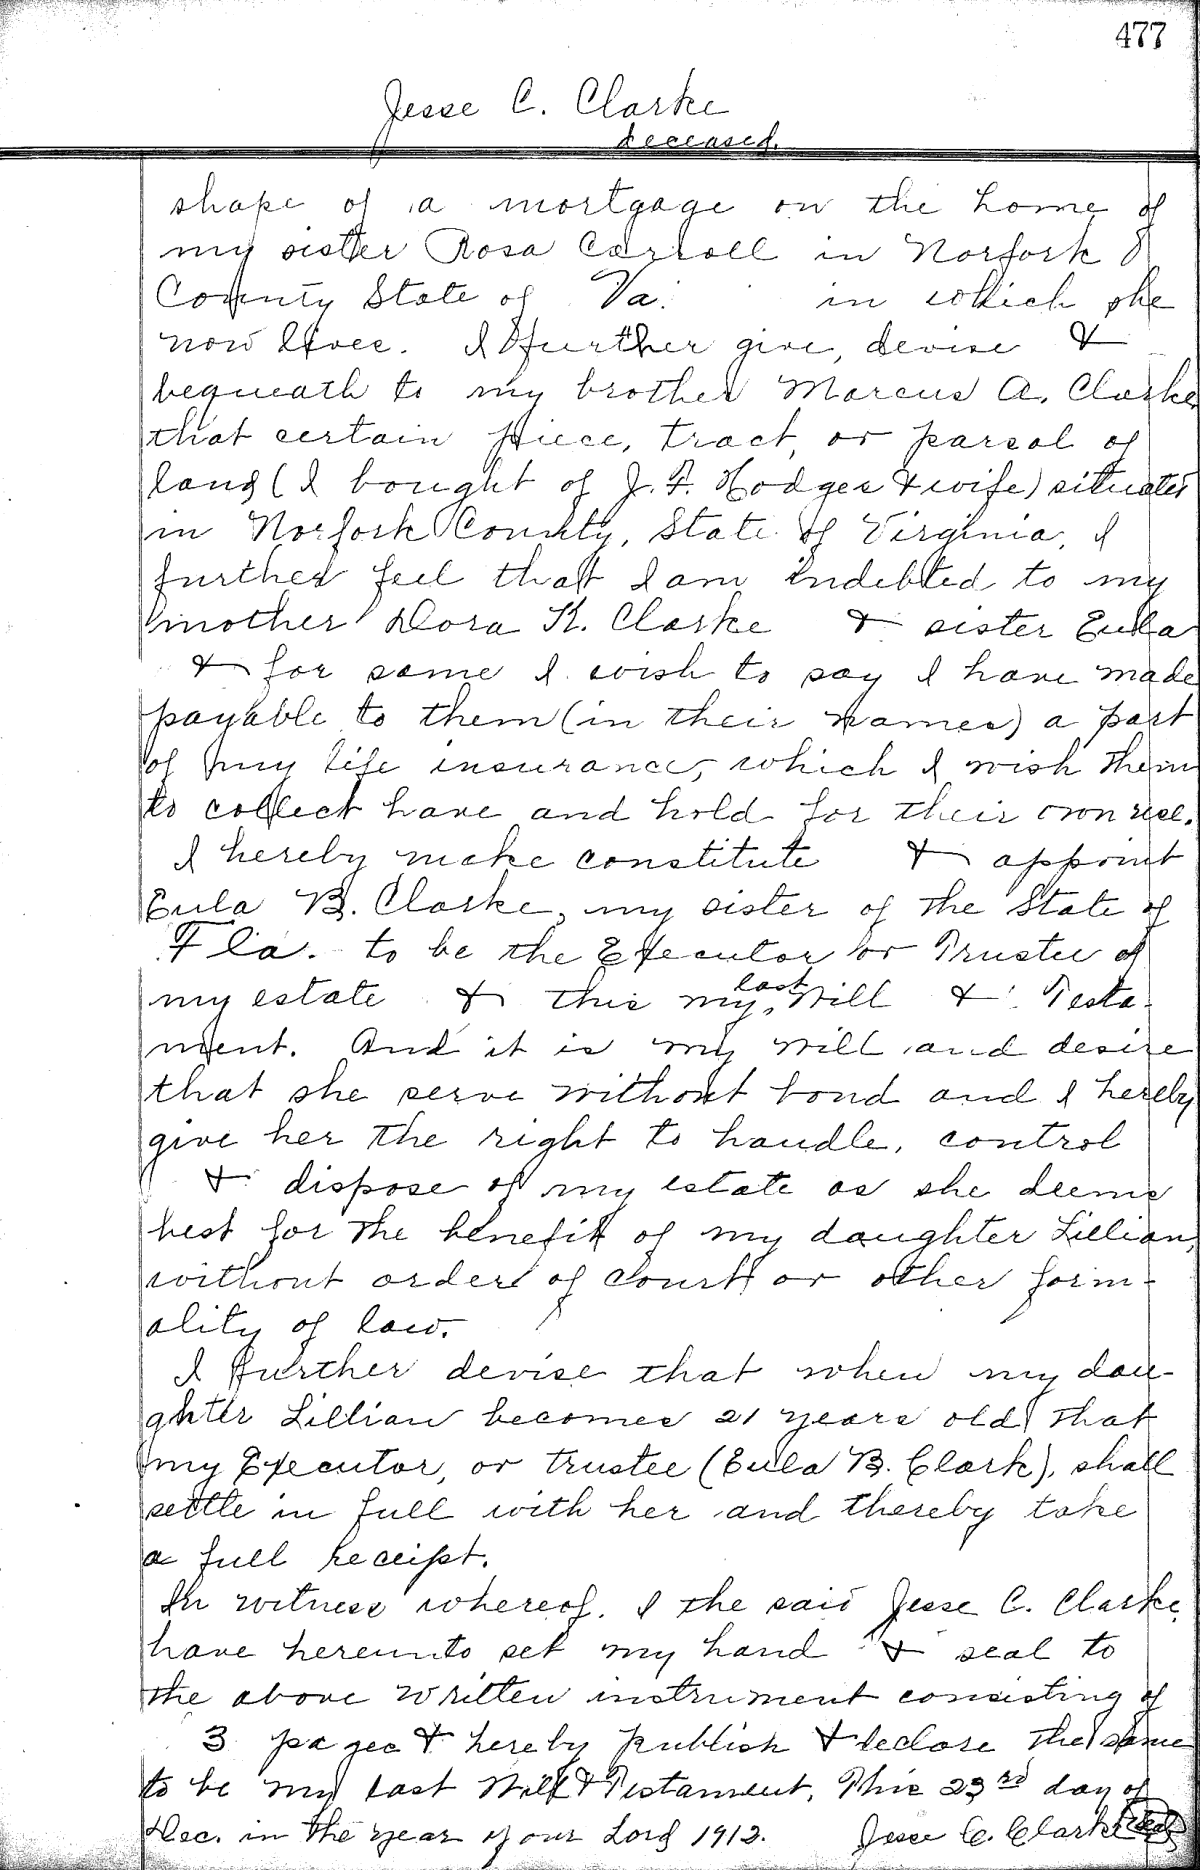 477
Jesse C. Clarke
deceased.
shape of a mortgage on the home of
my sister Rosa Carroll in Norfork
County State of Va. in which she
now lives. I further give, devise &
bequeath to my brother Marcus A. Clarke
that certain piece, tract, or parsal of
land (I bought of J. F. Hodges & wife) situated
in Norfork County, State of Virginia, I
further feel that I am indebted to my
mother Dora K. Clarke & sister Eula
& for same I wish to say I have made
payable to them (in their names) a part
of my life insurance, which I wish them
to collect have and hold for their own use.
I hereby make constitute & appoint
Eula B. Clarke, my sister of the State of
Fla. to be the Executor or Trustee of
my estate & this my last Will & Testa-
ment. And it is my will and desire
that she serve without bond and I hereby
give her the right to handle, control
& dispose of my estate as she deems
best for the benefit of my daughter Lillian,
without order of Court or other form-
ality of law.
I further devise that when my dau-
ghter Lillian becomes 21 years old that
my Executor, or trustee (Eula B. Clark), shall
settle in full with her and thereby take
a full receipt.
In witness whereof, I the said Jesse C. Clarke,
have hereunto set my hand & seal to
the above written instrument consisting of
3 pages & hereby publish & declare the same
to be my last Will & Testament, This 23rd day of
Dec. in the year of our Lord 1912. Jesse C. Clarke (Seal)